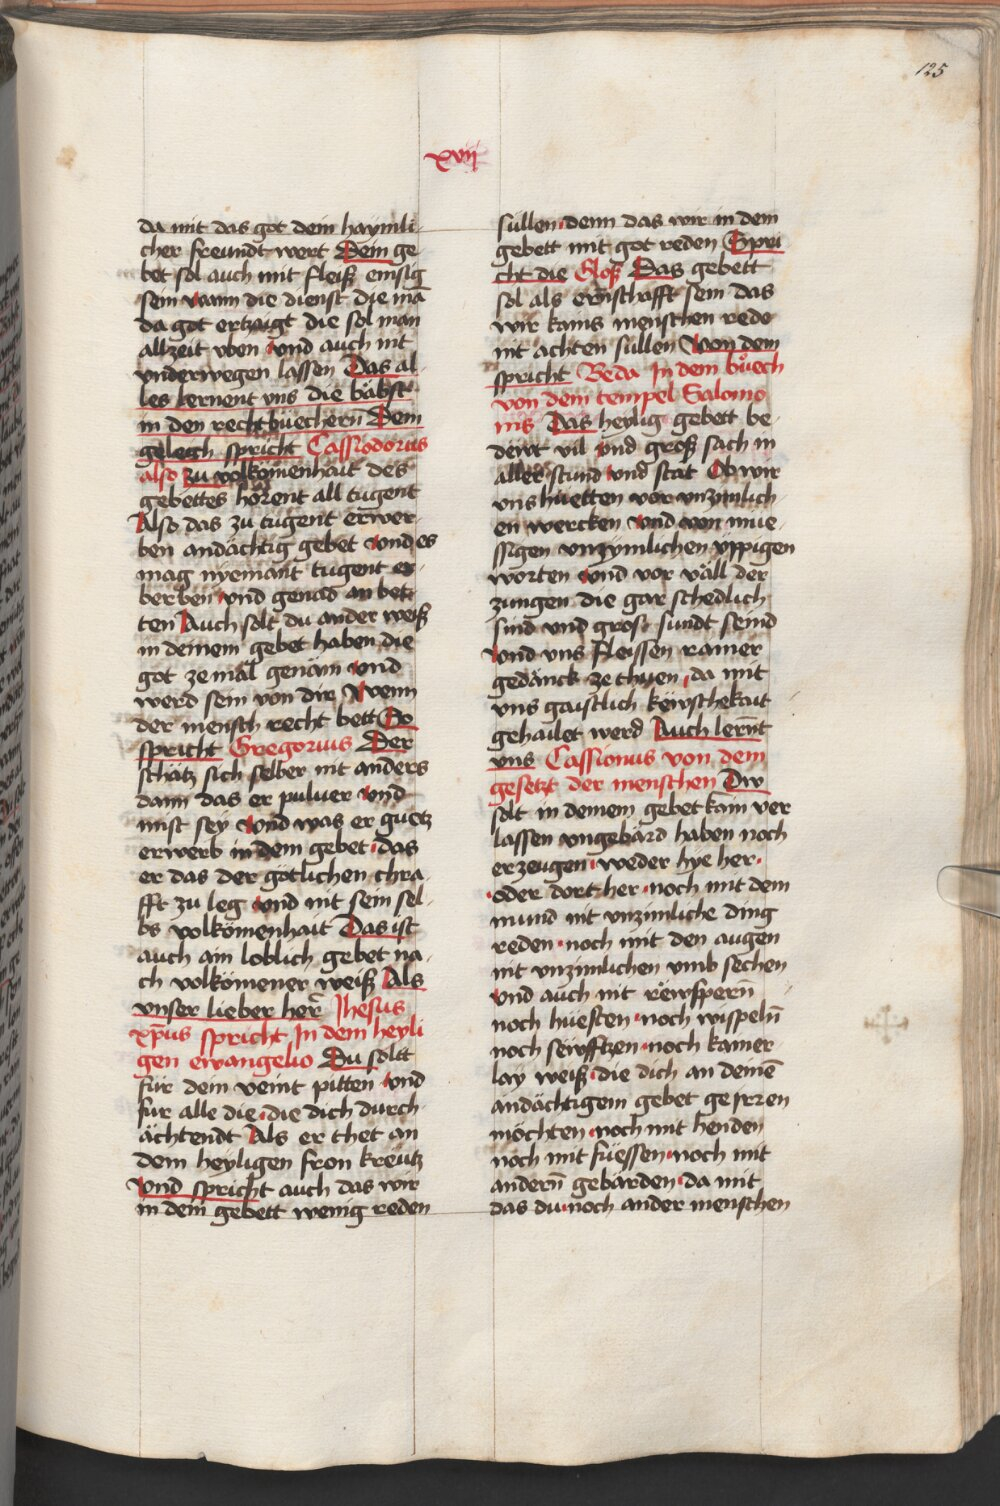 125
xvij
da mit das got dein haymli-
cher freundt wert Dein ge
bet sol auch mit fleiß emsig
sein wann die dienst die mā
da got ertzaigt die sol man
allzeit vben vnd auch nit
vnderwegen lassen Das al-
les lernent vns die bäbst
in den recht büechern̄ Dem
geleich spricht Cassiodorus
also zu volkomenhait des
gebettes hörent all tugent
Also das zu tugent erwer-
ben andächtig gebet vnd es
mag nyemant tugent er-
berben vnd genad an bett
ten Auch solt du ander weiß
in deinem gebet haben die
got ze mal genäm vnd
werd sein von dir Wenn
der mensch recht bett So
spricht Gregorius Der
schätz sich selber nit anders
dann das er puluer vnd
mist sey vnd was er guetz
erwerb in dem gebet das
er das der götlichen chra
fft zu leg vnd nit sein sel-
bs volkömenhait Das ist
auch ain loblich gebet na-
ch volkömener weiß Als
vnser lieber her̄ Jhesus
xp̄us spricht In dem heyli
gen ewangelio Du soltt
für dein veint pitten vnd
für alle die die dich durch-
ächtendt Als er thet an
dem heyligen fron kreutz
Vnd spricht auch das wir
in dem gebett wenig reden
süllen denn das wir in dem
gebett mit got reden Spri
cht die Gloß Das gebett
sol als ernschafft sein das
wir kains menschen rede
nit achten süllen Von dem
spricht Beda In dem büech
von dem tempel Salomo
nis Das heylig gebett be-
dewt vil vnd groß sach in
aller stund vnd stat Ob wir
vns hüetten vor vnzimlich-
en wercken vnd von mue-
ssigen vnzymlichen yppigen
worten vnd vor väll der
zungen die gar schedlich
sind vnd gros sündt seind
Vnd vns fleissen rainer
gedänck ze thuen da mit
vns gaistlich kewschekait
gehailet werd Auch lern̄t
vns Cassionus von dem
gesetzt der menschen Dw
solt in deinem gebet kain ver
lassen vngebärd haben noch
erzeugen weder hye her
oder dort her noch mit dem
mund nit vnzimliche ding
reden noch mit den augen
nit vnzimlichen vmb sechen
Vnd auch nit rewspern̄
noch huesten noch wispeln̄
noch sewfftzen noch kainer
lay weiß die dich an deinē
andächtigem gebet ge irren
möchten noch mit henden
noch mit füessen noch mit
andern̄ gebärden da mit
das du noch ander menschen